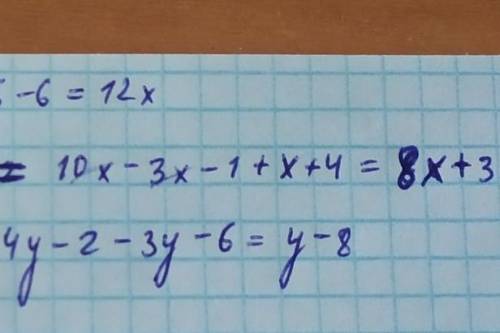 -6 = 12x
= 10x - 3x - 1 + x + 4 = 8x + 3
4y - 2 - 3y - 6 = y - 8